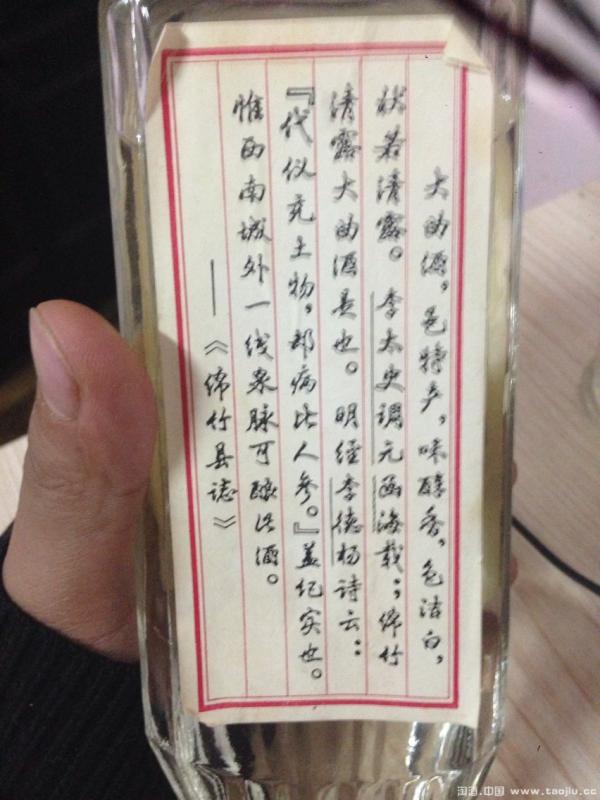 大曲酒，邑特产，味醇香，色洁白，
状若清露。李太史调元函海载：绵竹
清露大曲酒是也。明经李德扬诗云：
『代仪充土物，郡病比人参。』盖纪实也。
惟西南城外一线泉脉可酿此酒。
——《绵竹县志》
淘酒.中国 www.taojiu.cc